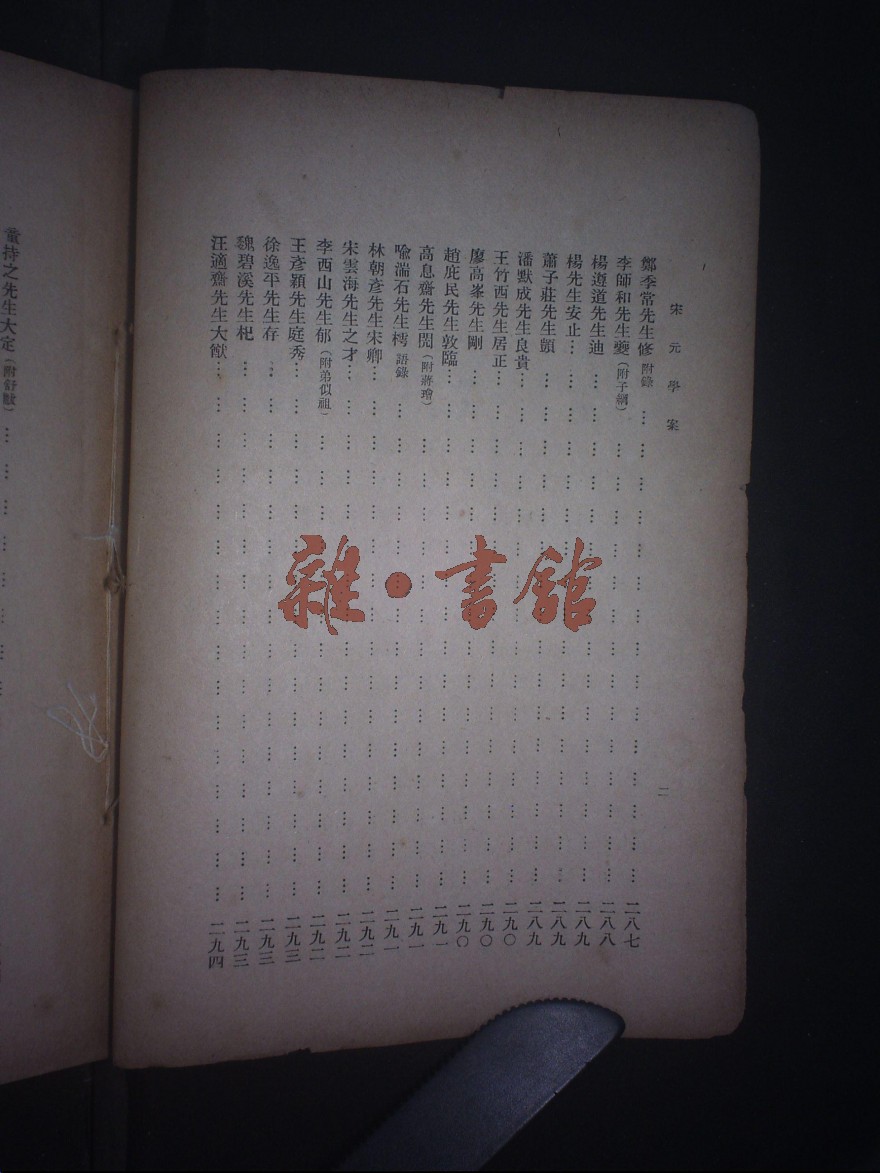 宋元學案
二
鄭季常先生修 附錄 二八七
李師和先生夔(附子綱) 二八八
楊遵道先生迪 二八八
楊先生安止 二八九
蕭子莊先生顗 二八九
潘默成先生良貴 二八九
王竹西先生居正 二九〇
廖高峯先生剛 二九〇
趙庇民先生敦臨 二九〇
高息齋先生閌(附蔣璿) 二九一
喻湍石先生樗 語錄 二九一
林朝彥先生宋卿 二九二
宋雲海先生之才 二九二
李西山先生郁(附弟似祖) 二九二
王彥穎先生庭秀 二九三
徐逸平先生存 二九三
魏碧溪先生杞 二九三
汪適齋先生大猷 二九四
童持之先生大定(附舒黻)
雜·書館